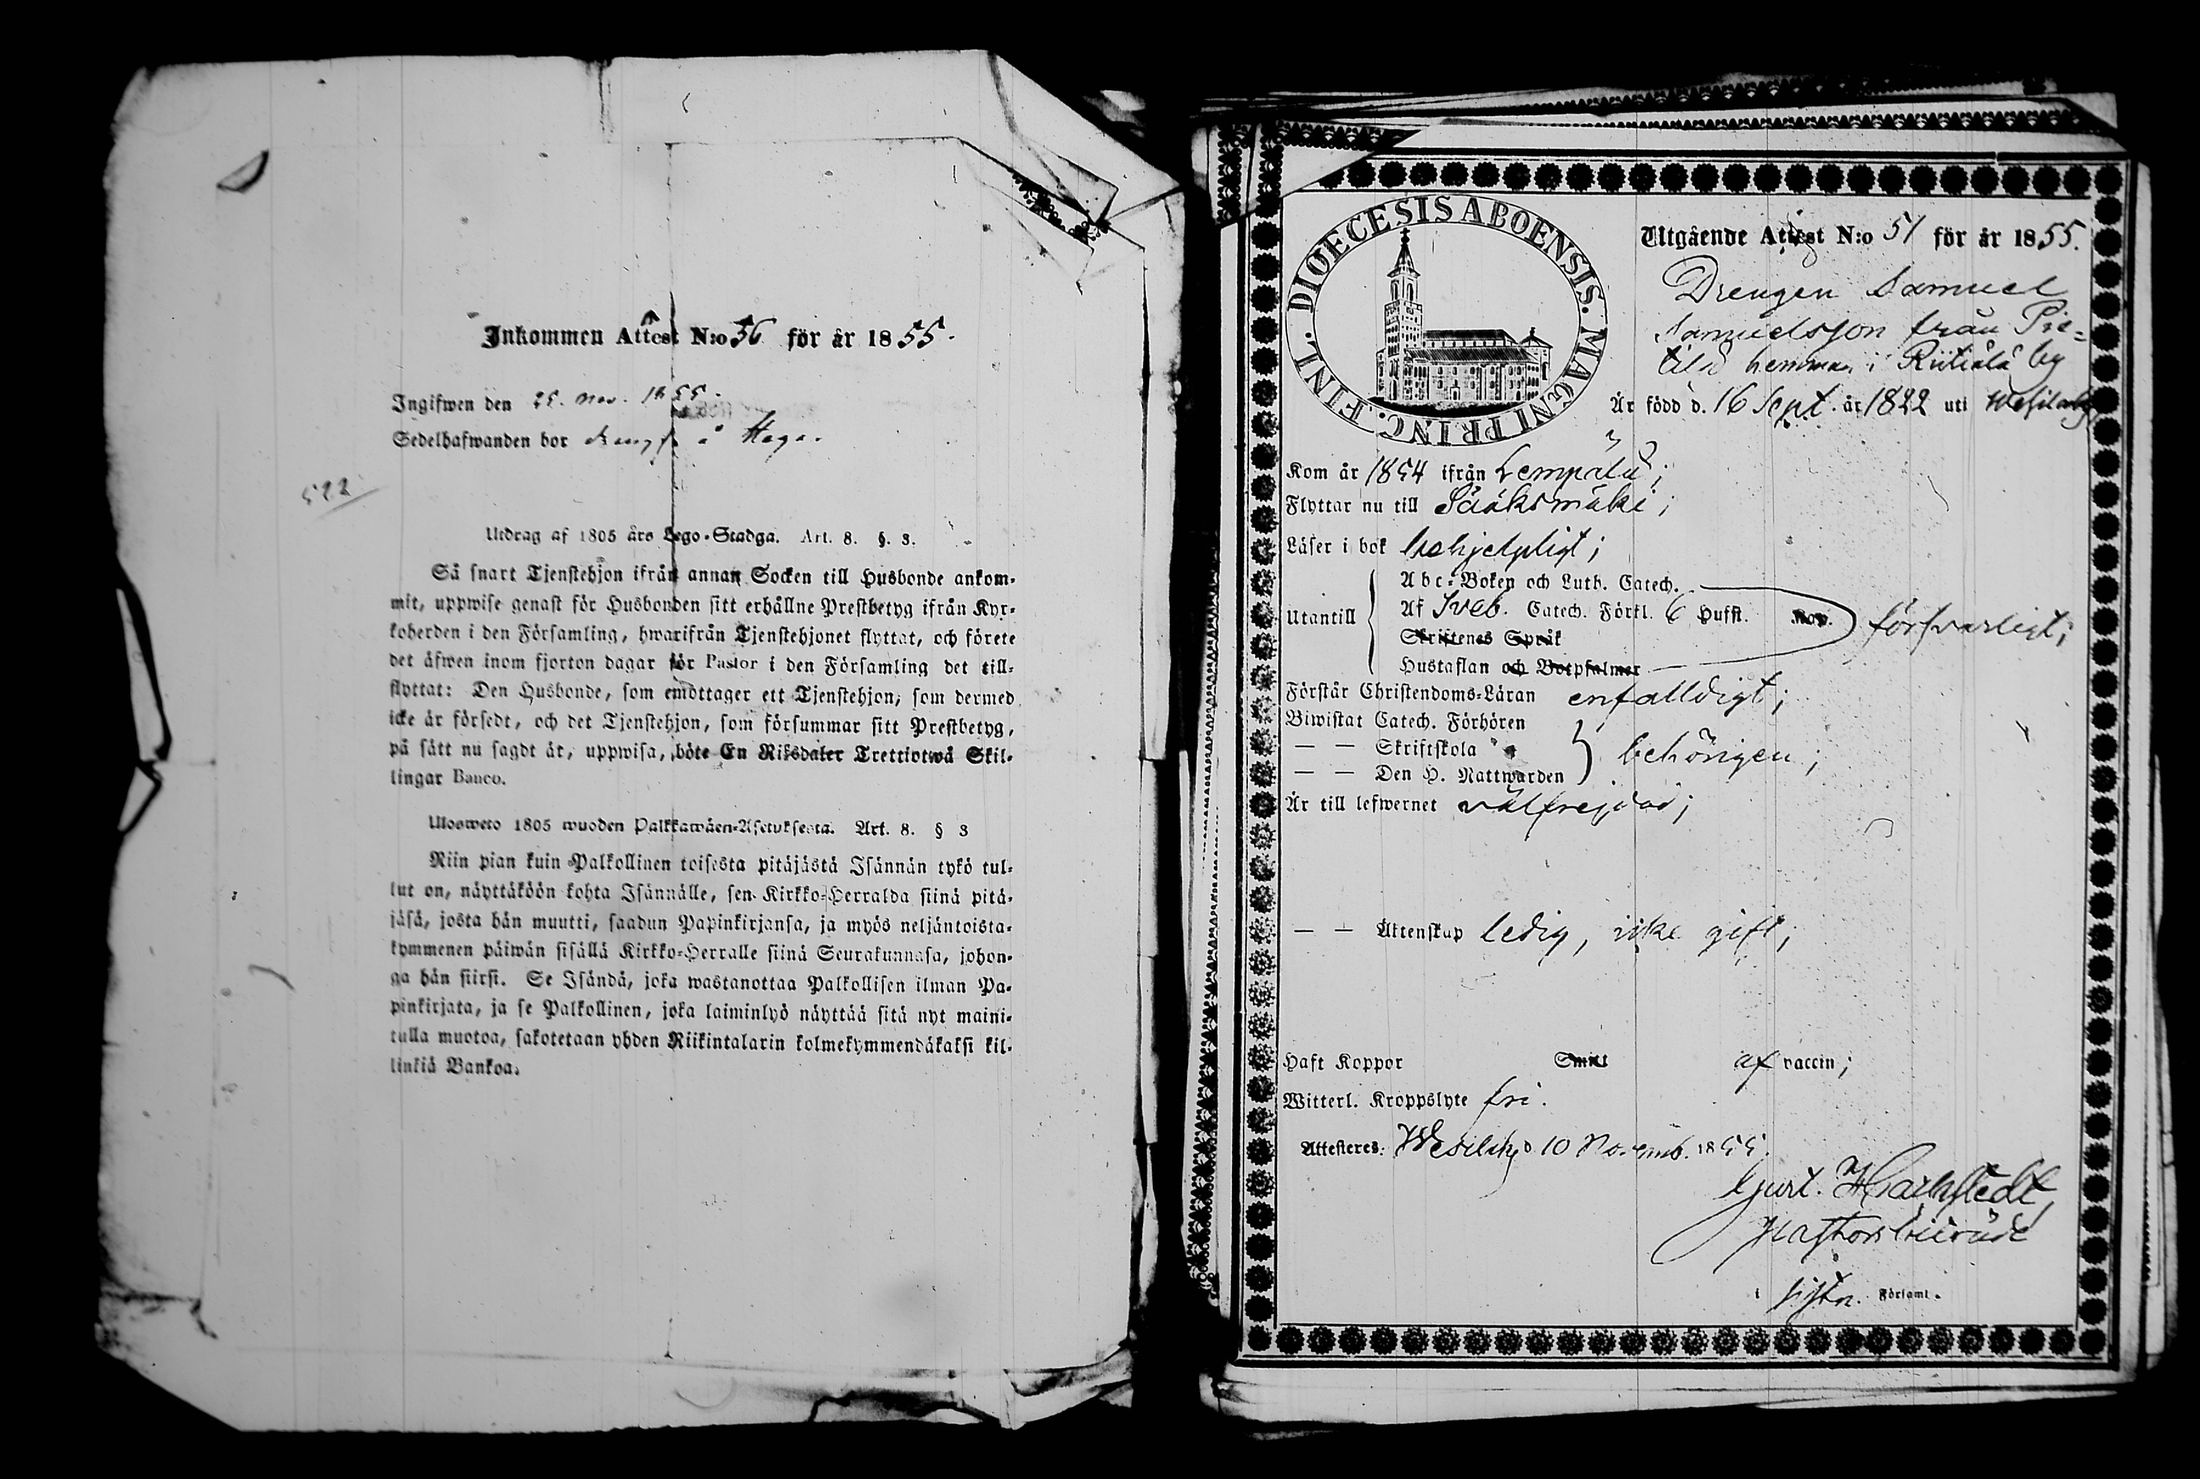 Inkommen Attest N:o 56 för år 1855.
Ingifwen den 25. Nov. 1855.
Sedelhafwanden bor å Haga.
522
Utdrag af 1805 års Lego-Stadga. Art. 8. §. 3.
Så snart Tjenstehjon ifrån annan Socken till Husbonde ankom-
mit, uppwise genast för Husbonden sitt erhållne Prestbetyg ifrån Kyr-
koherden i den Församling, hwarifrån Tjenstehjonet flyttat, och förete
det äfwen inom fjorton dagar för Pastor i den Församling det till-
flyttat: Den Husbonde, som emottager ett Tjenstehjon, som dermed
icke är försedt, och det Tjenstehjon, som försummar sitt Prestbetyg,
på sätt nu sagdt är, uppwisa, böte En Riksdaler Trettiotwå Skil-
lingar Banco.
Ulosweto 1805 wuoden Palkkawäen-Asetuksesta. Art. 8. § 3
Niin pian kuin Palkollinen toisesta pitäjästä Isännän tykö tul-
lut on, näyttäköön kohta Isännälle, sen Kirkko-Herralda siinä pitä-
jäsä, josta hän muutti, saadun Papinkirjansa, ja myös neljäntoista-
kymmenen päiwän sisällä Kirkko-Herralle siinä Seurakunnasa, johon-
ga hän siirsi. Se Isändä, joka wastanottaa Palkollisen ilman Pa-
pinkirjata, ja se Palkollinen, joka laiminlyö näyttää sitä nyt maini-
tulla muotoa, sakotetaan yhden Riikintalarin kolmekymmendäkaksi kil-
linkiä Bankoa.
DIOECESIS ABOENSIS. MAGNI PRINC. FINL.
Utgående Attest N:o 51 för år 1855.
Drengen Samuel
Samuelsson från Pie-
tilä hemman i Riitiälä by
Är född d. 16 Sept. år 1822 uti Wesilaks
Kom år 1854 ifrån Lempälä;
Flyttar nu till Sääksmäki;
Läser i bok behjelpligt;
Abc-Boken och Luth. Catech.
Utantill Af Sveb. Catech. Förkl. 6 Hufst. Kap. försvarligt;
Skriftenes Språk
Hustaflan och Botpsalmer
Förstår Christendoms-Läran enfalldigt;
Biwistat Catech. Förhören
— — Skriftskola behörigen;
— — Den H. Nattwarden
Är till lefwernet välfrejdad;
— — Äktenskap ledig, icke gift,
Haft Koppor Smitt af vaccin;
Witterl. Kroppslyte fri.
Attesteres: Wesilaks d. 10 Novemb. 1855.
Pastors biträde
i Församl.